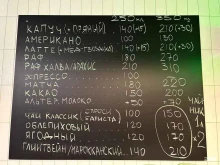 250 мл 350 мл
КАПУЧ (+ПРЯНЫЙ) 140(+15) 210(+30)
АМЕРИКАНО 100 150
ЛАТТЕ (+МЕД-ГВОЗДИКА) 140(+15) 210(+30)
РАФ 180 270
РАФ ХАЛВА/АРАХИС 210 310
ЭСПРЕССО 100
МАТЧА 180 270
КАКАО 150 200
АЛЬТЕР. МОЛОКО +70
ЧАИ КЛАССИК (СПРОСИ БАРИСТА) 100 150
ОБЛЕПИХОВЫЙ 120 170
ЯГОДНЫЙ 120 170
ГЛИНТВЕЙН/МАРОККАНСКИЙ 140 210